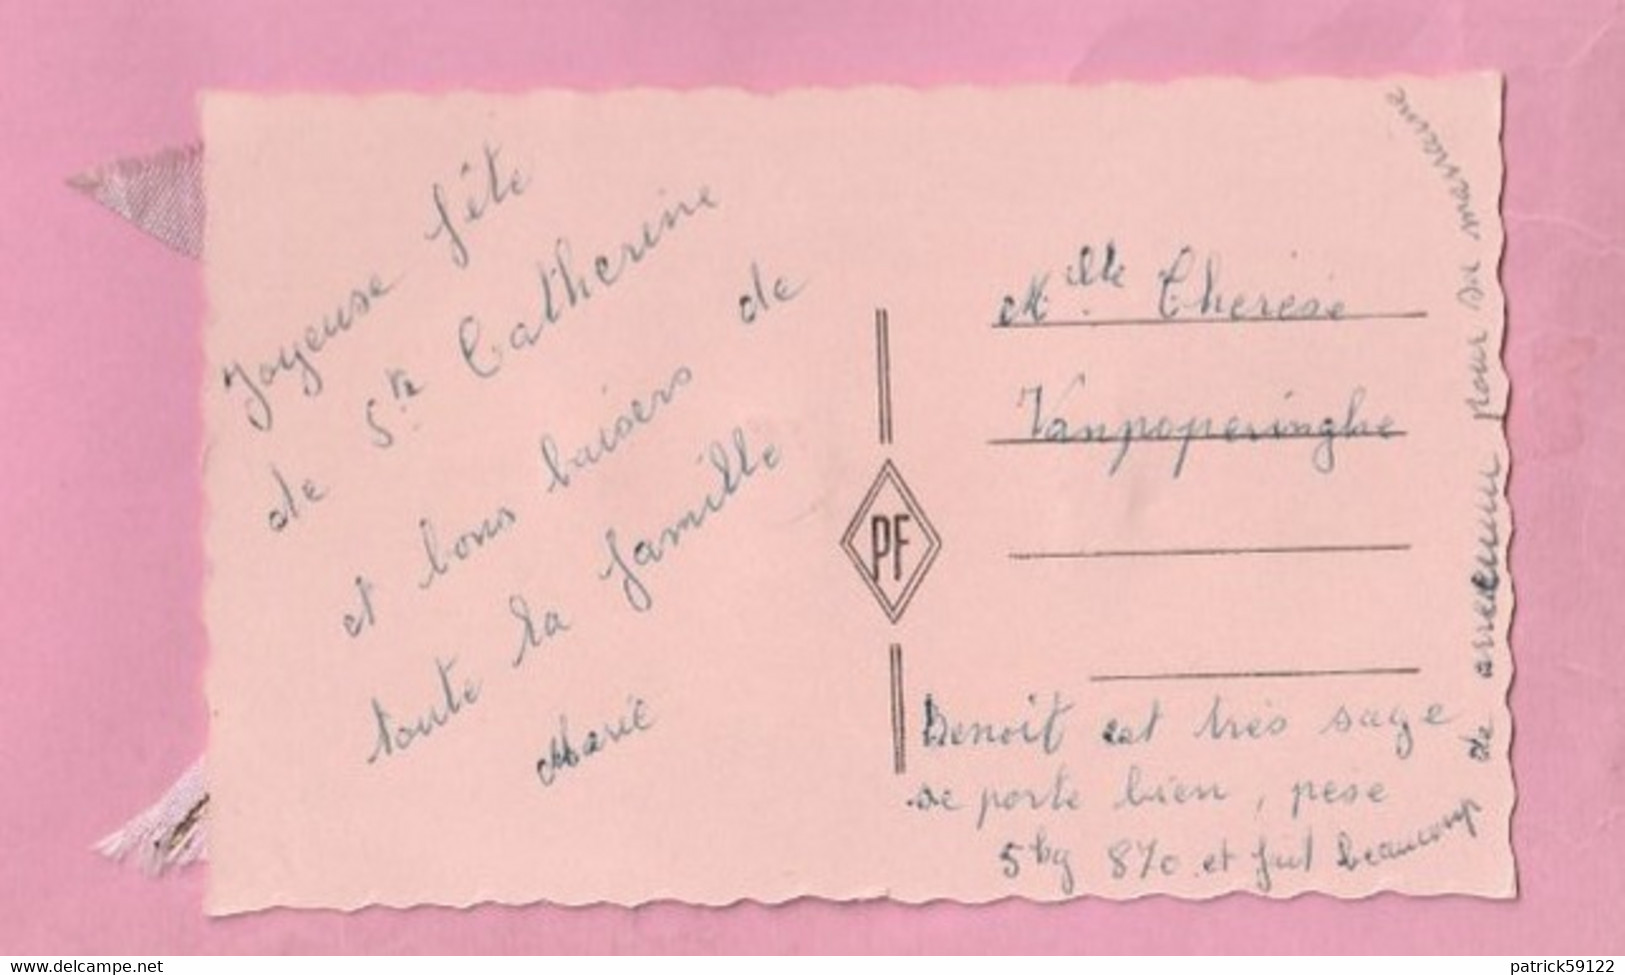 Joyeuse fête
de Ste Catherine
et bons baisers de
toute la famille
Marie
PF
Mlle Thérèse
Vanpoperinghe
Benoit est très sage
se porte bien, pèse
5 kg 870 et fait beaucoup
de arreuuu pour sa marraine
www.delcampe.net
patrick59122